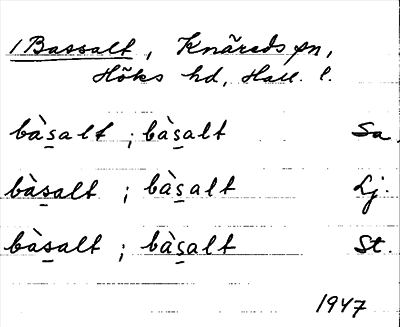 1 Bassalt, Knäreds sn,
Höks hd, Hall. l.
bàs̲alt ; bàs̲alt Sa.
bàs̲alt ; bàs̲alt Lj.
bàs̲alt ; bàs̲alt St.
1947